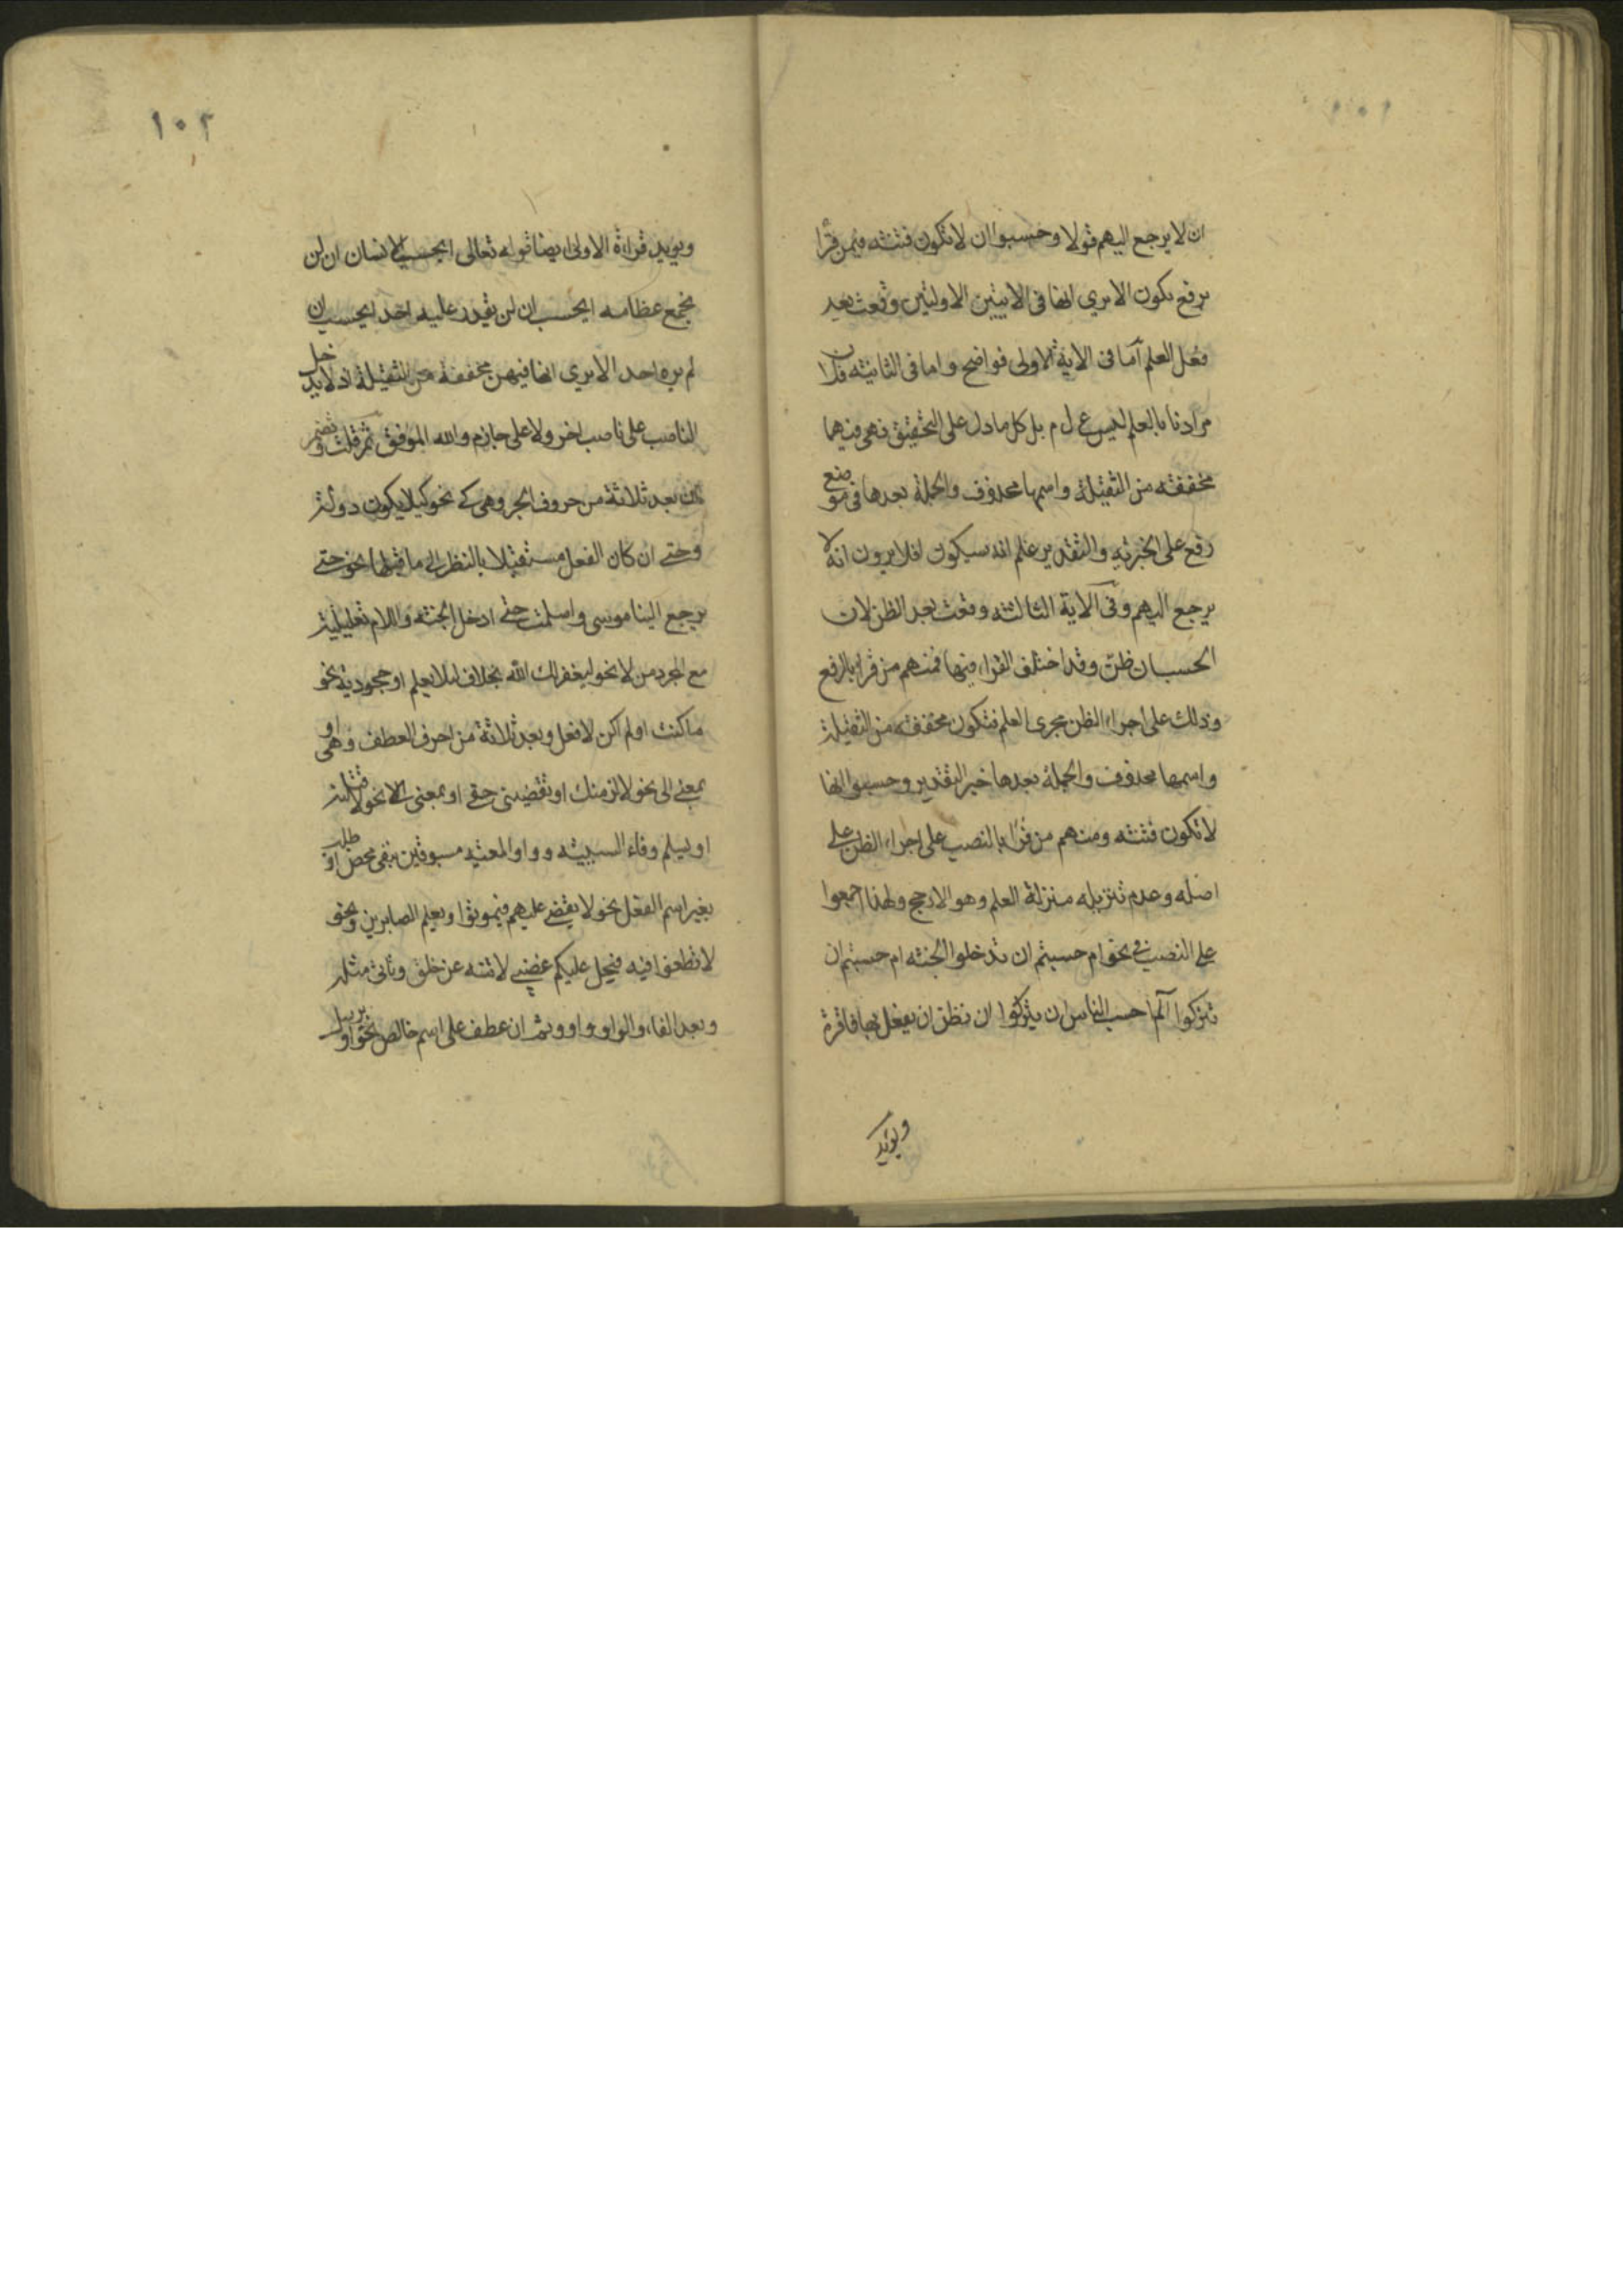 ١٠١
ان لا يرجع اليهم قولا وحسبوا ان لا تكون فتنته فيمن قرأ
برفع تكون الا يري انها في الايتين الاوليتين وقعت بعد
فعل العلم أما في الاية الاولى فواضح واما في الثانيته فلان
مرادنا بالعلم ليس ع ل م بل كل ما دل على التحقيق فهي فيهما
مخففته من الثقيلة واسمها محذوف والجملة بعدها في موضع
رفع على الخبريه والتقدير علم انه سيكون افلا يرون انه لا
يرجع اليهم وفي الآية الثالثته وقعت بعد الظن لان
الحسبان ظن وقد اختلف القراء فيها فمنهم من قرا بالرفع
وذلك على اجراء الظن مجرى العلم فتكون مخففته من الثقيلة
واسمها محذوف والجملة بعدها خبر التقدير وحسبوا انها
لا تكون فتنته ومنهم من قرأ بالنصب على اجراء الظن على
اصله وعدم تنزيله منزلة العلم وهو الارجح ولهذا اجمعوا
على النصب في نحو ام حسبتم ان تدخلوا الجنته ام حسبتم ان
تتركوا آلم احسب الناس ان يتركوا ان تظن ان يفعل بها فاقرة
ويويد
١٠٢
ويويد قراءة الاولى ايضا قوله تعالى ايحسب الانسان ان لن
نجمع عظامه ايحسب ان لن يقدر عليه احد ايحسب ان
لم يره احد الا يري انها فيهن مخففة من الثقيلة اذ لا يدخل
الناصب على ناصب اخر ولا على جازم والله الموفق ثم قلت وتضمر
ان بعد ثلاثة من حروف الجر وهي كي نحو كيلا يكون دولة
وحتى ان كان الفعل مستقبلا بالنظر الى ما قبلها نحو حتى
يرجع الينا موسى واسلمت حتى ادخل الجنته واللام تعليلية
مع المجرد من لا نحو ليغفر لك الله بخلاف لئلا يعلم او جحودية نحو
ما كنت او لم اكن لافعل وبعد ثلاثة من احرف العطف وهي او
بمعنى الى نحو لالزمنك او تقضيني حقي او بمعنى الا نحو لاقتلنه
او يسلم وفاء السببيته وواو المعيه مسبوقين بنفي محض او طلب
بغير اسم الفعل نحو لا يقضى عليهم فيموتوا ويعلم الصابرين ونحو
لا تطغوا فيه فيحل عليكم غضبي لا تنه عن خلق وتاتي مثله
وبعد الفاء والواو واو وثم ان عطف على اسم خالص نحو او يرسل